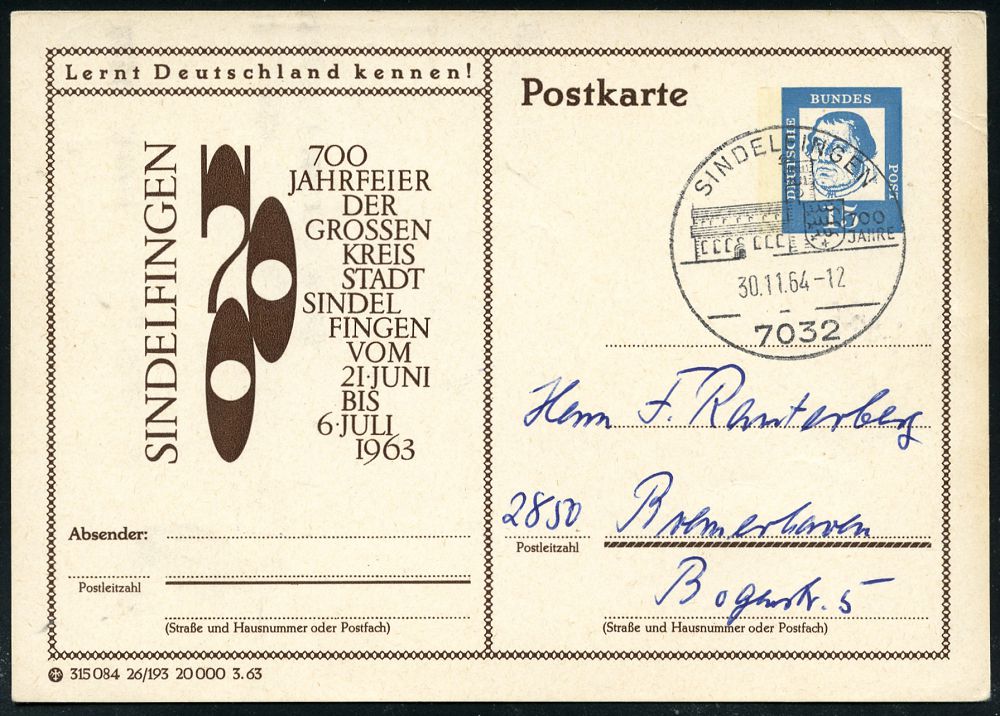 Lernt Deutschland kennen!
SINDELFINGEN
700
700
JAHRFEIER
DER
GROSSEN
KREIS
STADT
SINDEL
FINGEN
VOM
21·JUNI
BIS
6·JULI
1963
Absender:
Postleitzahl
(Straße und Hausnummer oder Postfach)
315 084 26/193 20 000 3.63
Postkarte
DEUTSCHE
BUNDES
POST
15
SINDELFINGEN
700
JAHRE
30.11.64-12
7032
Herrn F. Rauterberg
2850 Bremerhaven
Postleitzahl
Bogenstr. 5
(Straße und Hausnummer oder Postfach)